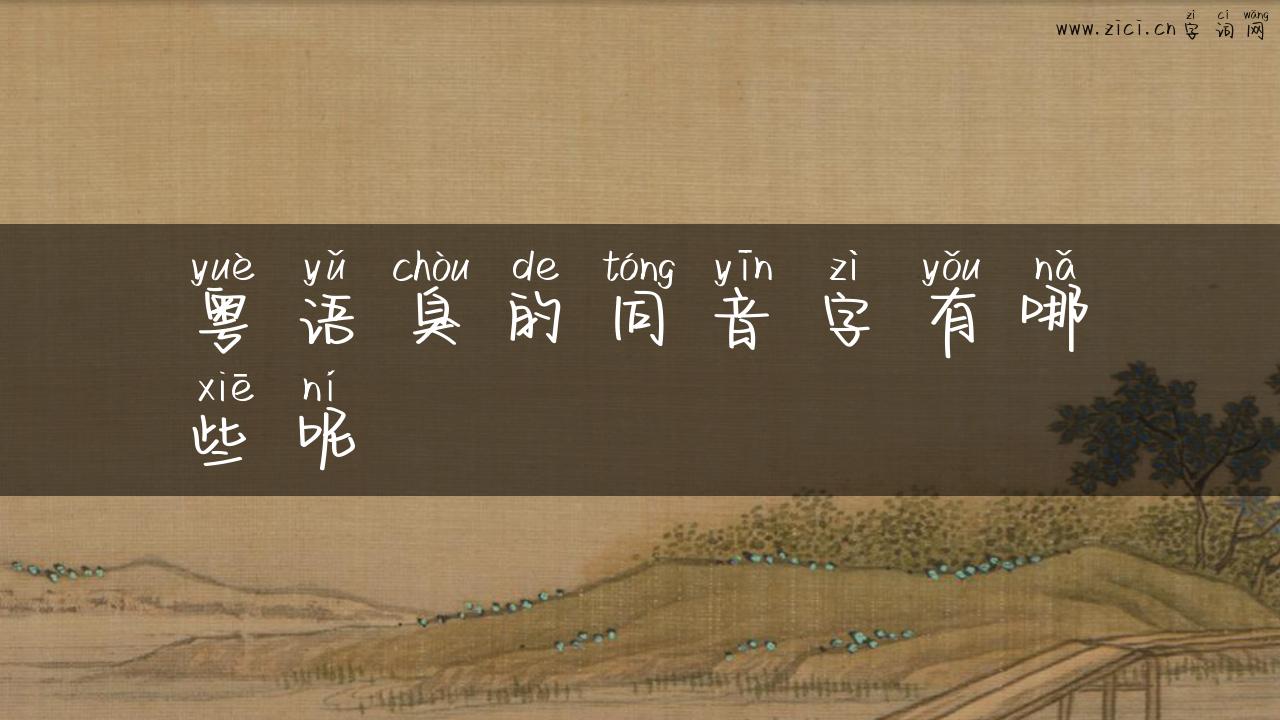 zì cí wǎng
www.zici.cn字词网
yuè yǔ chòu de tóng yīn zì yǒu nǎ
粤语臭的同音字有哪
xiē ní
些呢